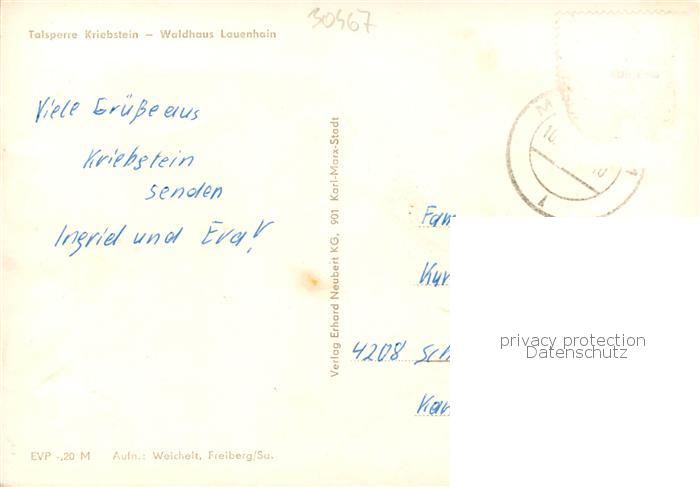 30467
Talsperre Kriebstein – Waldhaus Lauenhain
Viele Grüße aus
Kriebstein
senden
Ingrid und Eva!
Verlag Erhard Neubert KG, 901 Karl-Marx-Stadt
4208
privacy protection
Datenschutz
EVP -,20 M Aufn.: Weichelt, Freiberg/Sa.